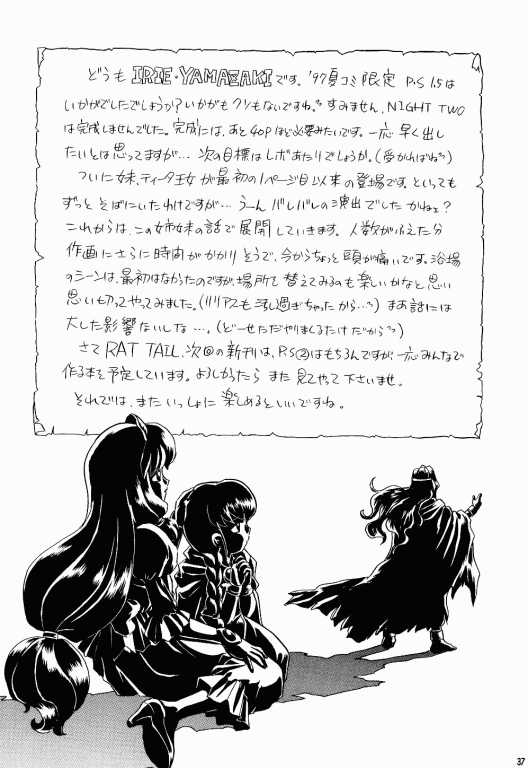 どうも IRIE・YAMAZAKIです。'97夏コミ限定 P.S 1.5は
いかがでしたでしょうか?いかがもクソもないですね。すみません、NIGHT TWO
は完成しませんでした。完成には、あと40Pほど必要みたいです。一応 早く出し
たいとは思ってますが… 次の目標はレボあたりでしょうか。(受かればね)
ついに妹、ティータ王女が最初の1ページ目以来の登場です。といっても
ずっと そばにいたわけですが… うーん バレバレの演出でした かねェ?
これからは、この姉妹の話で展開していきます。人数がふえた分
作画にさらに時間がかかりそうで、今からちょっと頭が痛いです。浴場
のシーンは、最初はなかったのですが、場所で替えてみるのも楽しいかなと思い
思い切ってやってみました。(リリアスも 過ぎちゃったから…) まあ話には
大した影響ないしな…。(どーせただやりまくるだけだから)
さて RAT TAIL、次の新刊は、P.S②はもちろんですが、一応みんなで
作る本を予定しています。よろしかったら また見てやって下さいませ。
それでは、またいっしょに楽しめるといいですね。
37